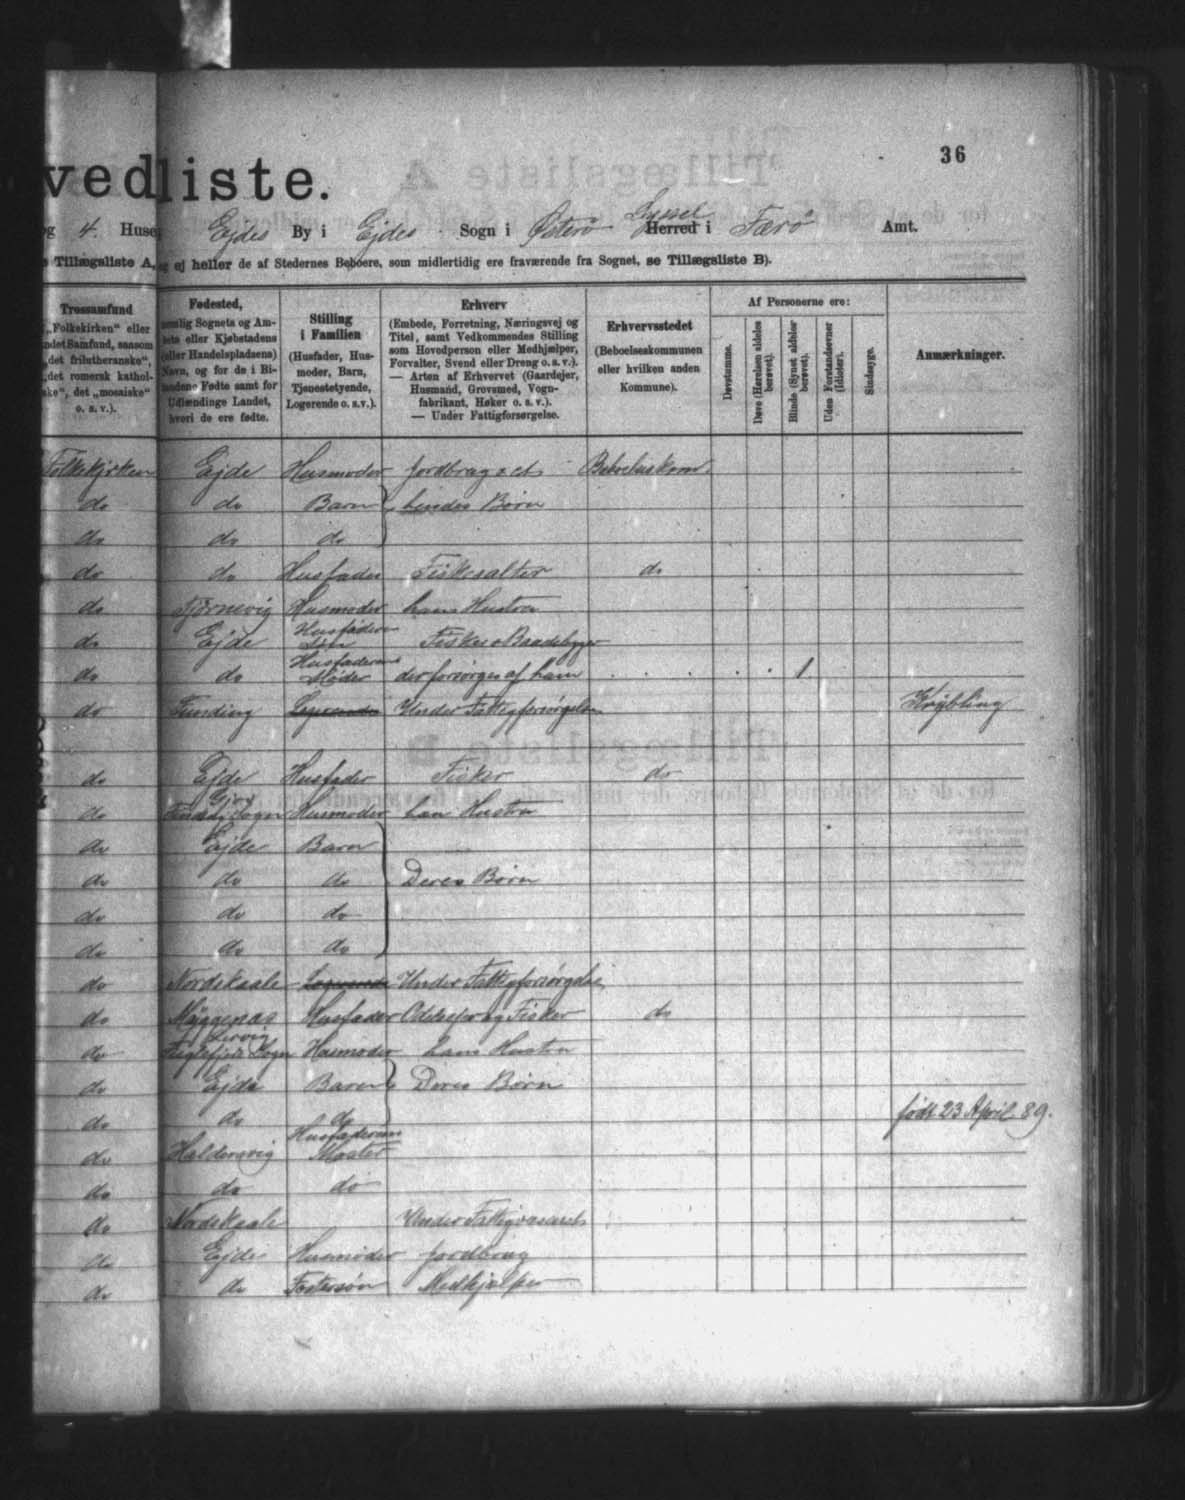 36
vedliste.
og 4. Huse Ejdes By i Ejdes Sogn i Østerø Syssel Herred i Færø Amt.
Tillægsliste A, og ej heller de af Stedernes Beboere, som midlertidig ere fraværende fra Sognet, se Tillægsliste B).
Trossamfund
„Folkekirken“ eller
andet Samfund, saasom
„det frilutheranske“,
„det romersk kathol-
ske“, det „mosaiske“
o. s. v.).
Fødested,
nemlig Sognets og Am-
tets eller Kjøbstadens
(eller Handelspladsens)
Navn, og for de i Bi-
landene Fødte samt for
Udlændinge Landet,
hvori de ere fødte.
Stilling
i Familien
(Husfader, Hus-
moder, Barn,
Tjenestetyende,
Logerende o. s. v.).
Erhverv
(Embede, Forretning, Næringsvej og
Titel, samt Vedkommendes Stilling
som Hovedperson eller Medhjælper,
Forvalter, Svend eller Dreng o. s. v.).
— Arten af Erhvervet (Gaardejer,
Husmand, Grovsmed, Vogn-
fabrikant, Høker o. s. v.).
— Under Fattigforsørgelse.
Erhvervsstedet
(Beboelseskommunen
eller hvilken anden
Kommune).
Af Personerne ere:
Døvstumme.
Døve (Hørelsen aldeles
berøvet).
Blinde (Synet aldeles
berøvet).
Uden Forstandsevner
(Idioter).
Sindssyge.
Anmærkninger.
Folkekirken Ejde Husmoder Jordbrug Beboelseskom
do do Barn hendes Børn
do do do
do do Husfader Fiskesalter do
do Tjørnevig Husmoder hans Hustru
do Ejde Husfaders Søn Fisker o Baadebygger
do do Husfaderens Moder der forsørges af ham 1
do Funding Logerende Under Fattigforsørgelse Krøbling
do Ejde Husfader Fisker do
do Gjov Sogn Husmoder han Hustru
do Ejde Barn
do do do Deres Børn
do do do
do do do
do Nordskaale Logerende Under Fattigforsørgelse
do Myggenæs Husfader Odelsejer og Fisker do
do Lervig Fuglefjord Sogn Husmoder hans Hustru
do Ejde Barn Deres Børn
do do do født 23 April 89.
do Haldersvig Husfaderens Moster
do do do
do Nordskaale Under Fattigvæsenet
do Ejde Husmoder Jordbrug
do do Fostersøn Medhjælper